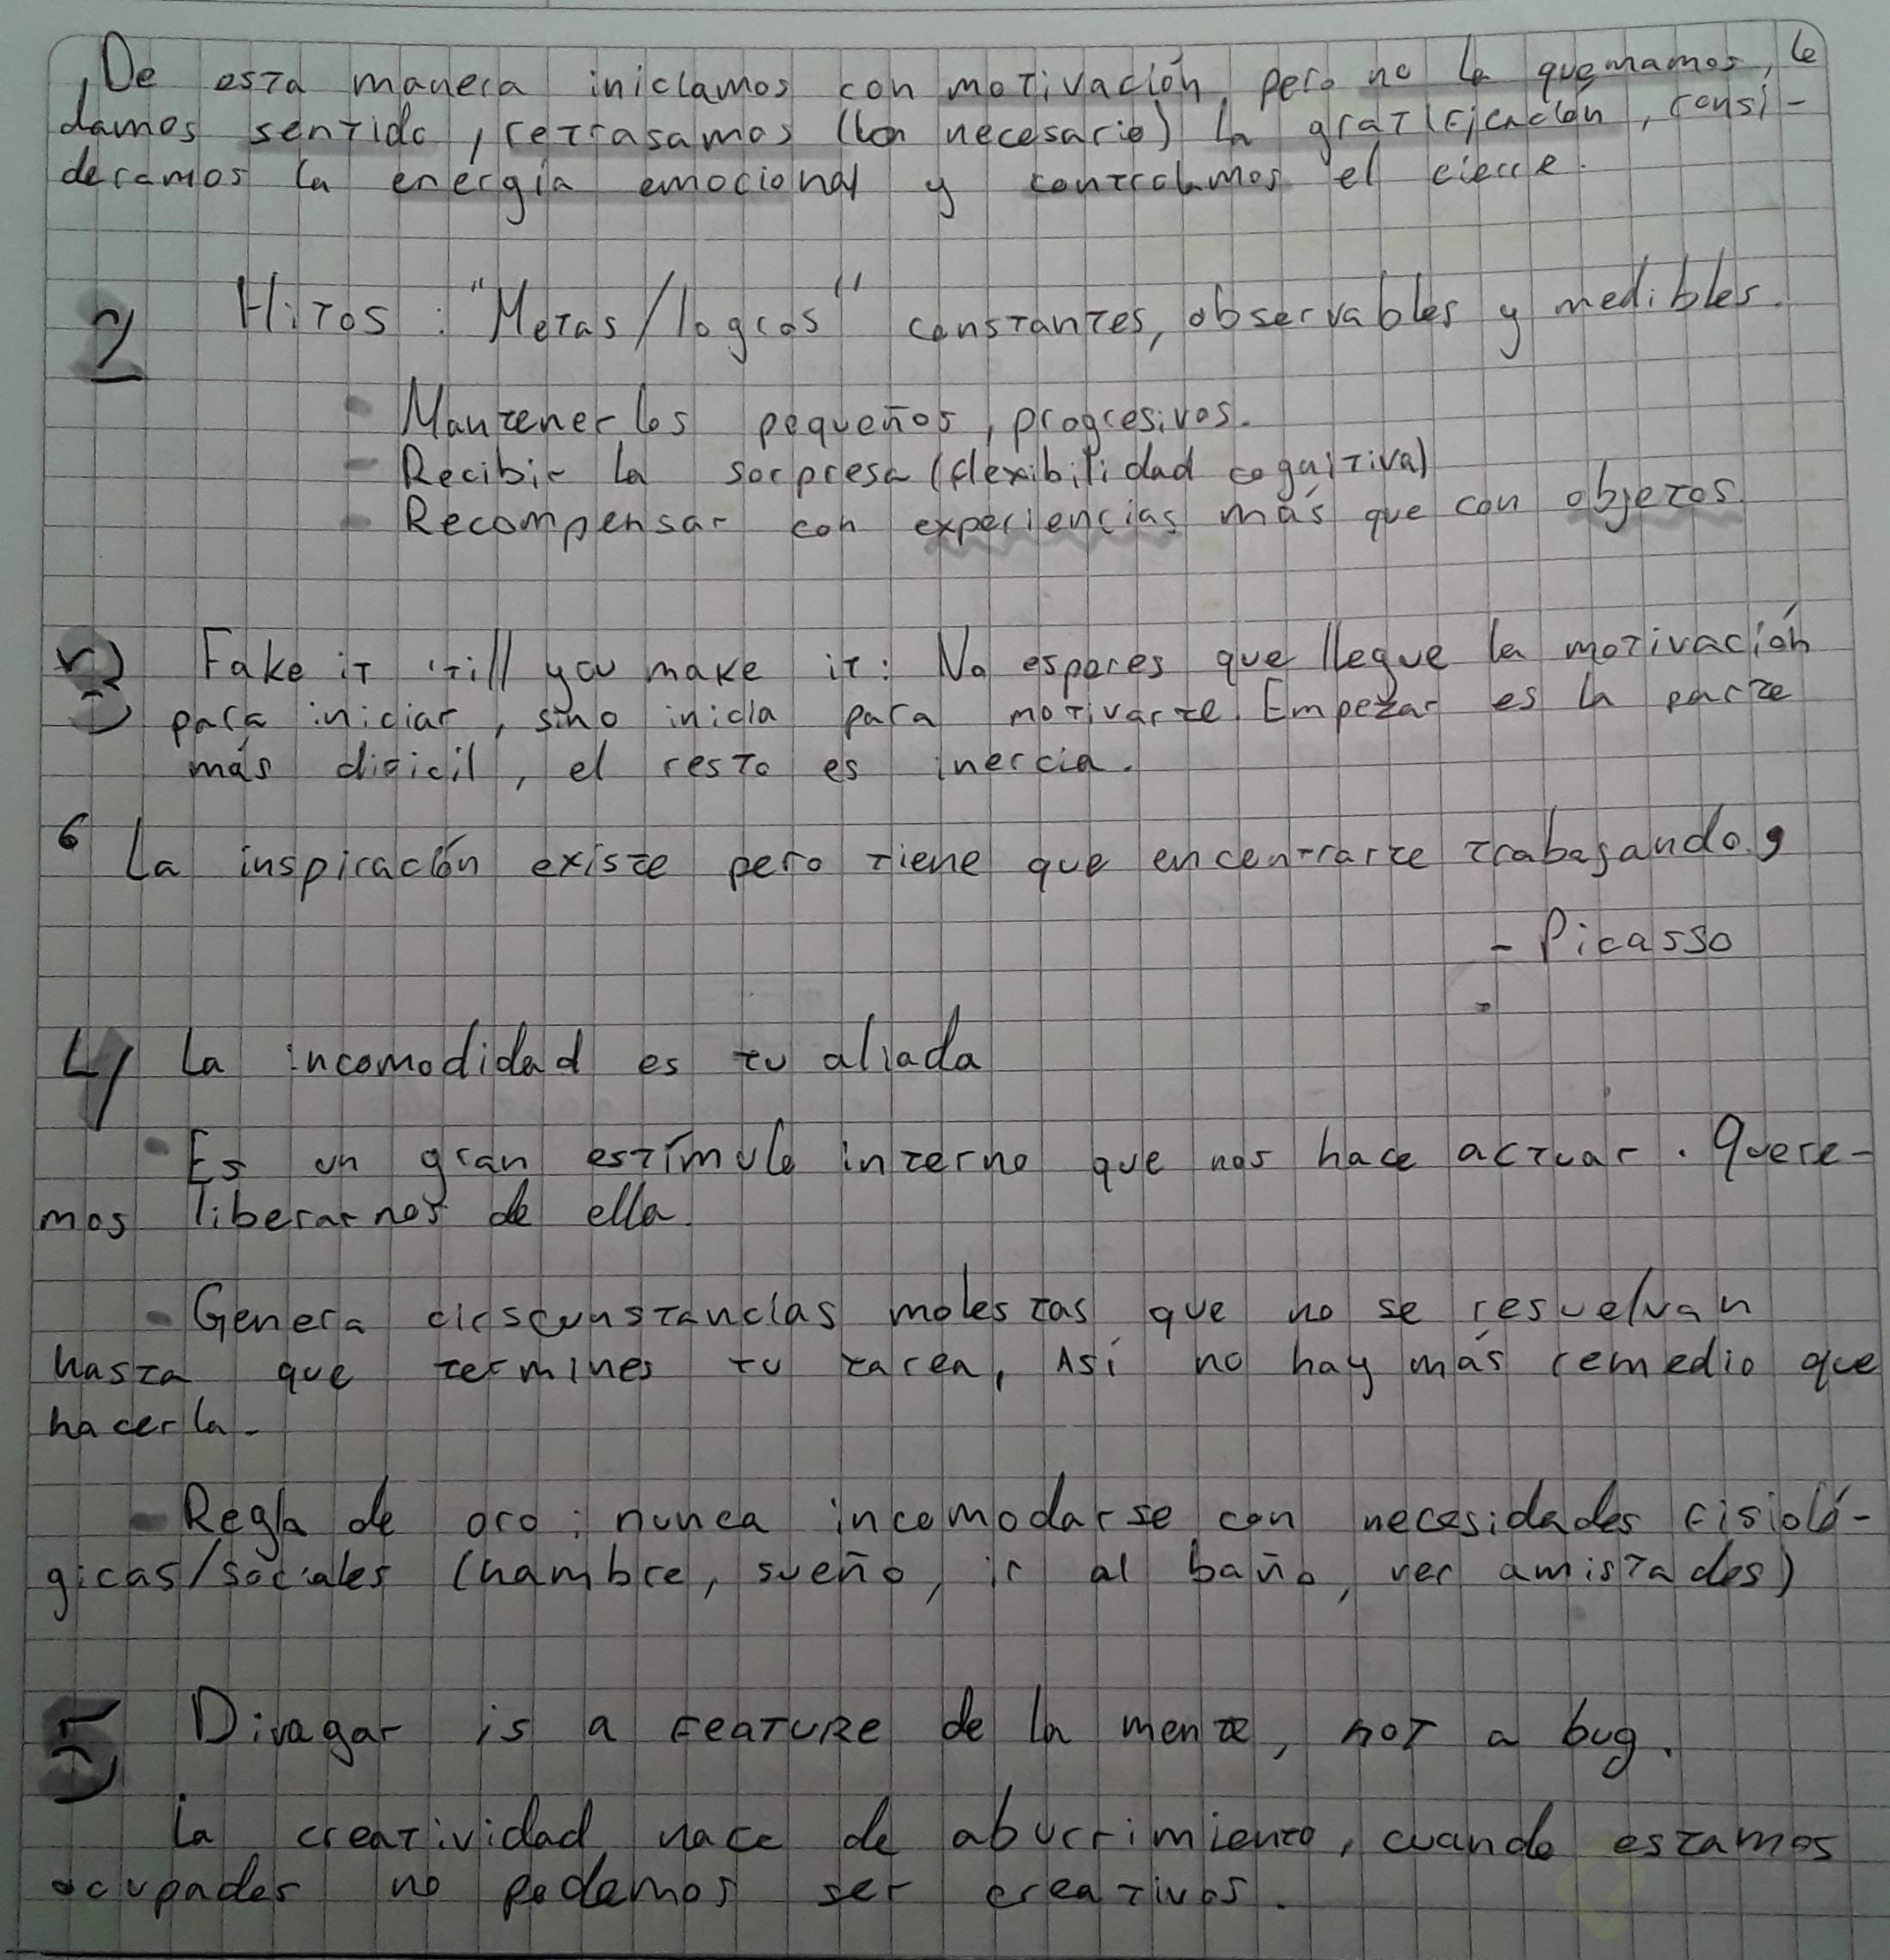 De esta manera iniciamos con motivación, pero no la quemamos, le
damos sentido, retrasamos (lo necesario) la gratificación, consi-
deramos la energía emocional y controlamos el cierre.
2 Hitos: "Metas/logros" constantes, observables y medibles.
- Mantenerlos pequeños, progresivos.
- Recibir la sorpresa (flexibilidad cognitiva)
- Recompensar con experiencias más que con objetos
3 Fake it 'till you make it: No esperes que llegue la motivación
para iniciar, sino inicia para motivarte. Empezar es la parte
más dificil, el resto es inercia.
"La inspiración existe pero tiene que encontrarte trabajando."
- Picasso
4 La incomodidad es tu aliada
- Es un gran estímulo interno que nos hace actuar. Quere-
mos liberarnos de ella.
- Genera circscunstancias molestas que no se resuelvan
hasta que termines tu tarea, Así no hay más remedio que
hacerla.
- Regla de oro: nunca incomodarse con necesidades fisioló-
gicas/sociales (hambre, sueño, ir al baño, ver amistades)
5 Divagar is a FEATURE de la mente, not a bug.
La creatividad nace de aburrimiento, cuando estamos
ocupados no podemos ser creativos.